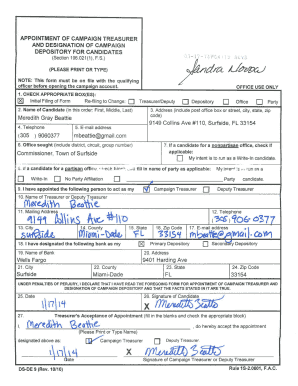 APPOINTMENT OF CAMPAIGN TREASURER
AND DESIGNATION OF CAMPAIGN
DEPOSITORY FOR CANDIDATES
(Section 106.021(1), F.S.)
(PLEASE PRINT OR TYPE)
NOTE: This form must be on file with the qualifying
officer before opening the campaign account.
OFFICE USE ONLY
1. CHECK APPROPRIATE BOX(ES):
Initial Filing of Form Re-filing to Change: Treasurer/Deputy Depository Office Party
2. Name of Candidate (in this order: First, Middle, Last)
Meredith Gray Beattie
3. Address (include post office box or street, city, state, zip
code)
9149 Collins Ave #110, Surfside, FL 33154
4. Telephone
(305 ) 9060377
5. E-mail address
mbeattie@gmail.com
6. Office sought (include district, circuit, group number)
Commissioner, Town of Surfside
7. If a candidate for a nonpartisan office, check if
applicable:
My intent is to run as a Write-In candidate.
8. If a candidate for a partisan office, check block and fill in name of party as applicable: My intent is to run as a
Write-In No Party Affiliation Party candidate.
9. I have appointed the following person to act as my Campaign Treasurer Deputy Treasurer
10. Name of Treasurer or Deputy Treasurer
Meredith Beattie
11. Mailing Address
9149 Collins Ave #110
12. Telephone
305, 906 0377
13. City
Surfside
14. County
Miami-Dade
15. State
FL
16. Zip Code
33154
17. E-mail address
mbeattie@gmail.com
18. I have designated the following bank as my Primary Depository Secondary Depository
19. Name of Bank
Wells Fargo
20. Address
9401 Harding Ave
21. City
Surfside
22. County
Miami-Dade
23. State
FL
24. Zip Code
33154
UNDER PENALTIES OF PERJURY, I DECLARE THAT I HAVE READ THE FOREGOING FORM FOR APPOINTMENT OF CAMPAIGN TREASURER AND
DESIGNATION OF CAMPAIGN DEPOSITORY AND THAT THE FACTS STATED IN IT ARE TRUE.
25. Date
1/17/14
26. Signature of Candidate
X Meredith Beattie
27. Treasurer's Acceptance of Appointment (fill in the blanks and check the appropriate block)
I, Meredith Beattie , do hereby accept the appointment
(Please Print or Type Name)
designated above as: Campaign Treasurer Deputy Treasurer
1/17/14 X Meredith Beattie
Date Signature of Campaign Treasurer or Deputy Treasurer
DS-DE 9 (Rev. 10/10) Rule 1S-2.0001, F.A.C.